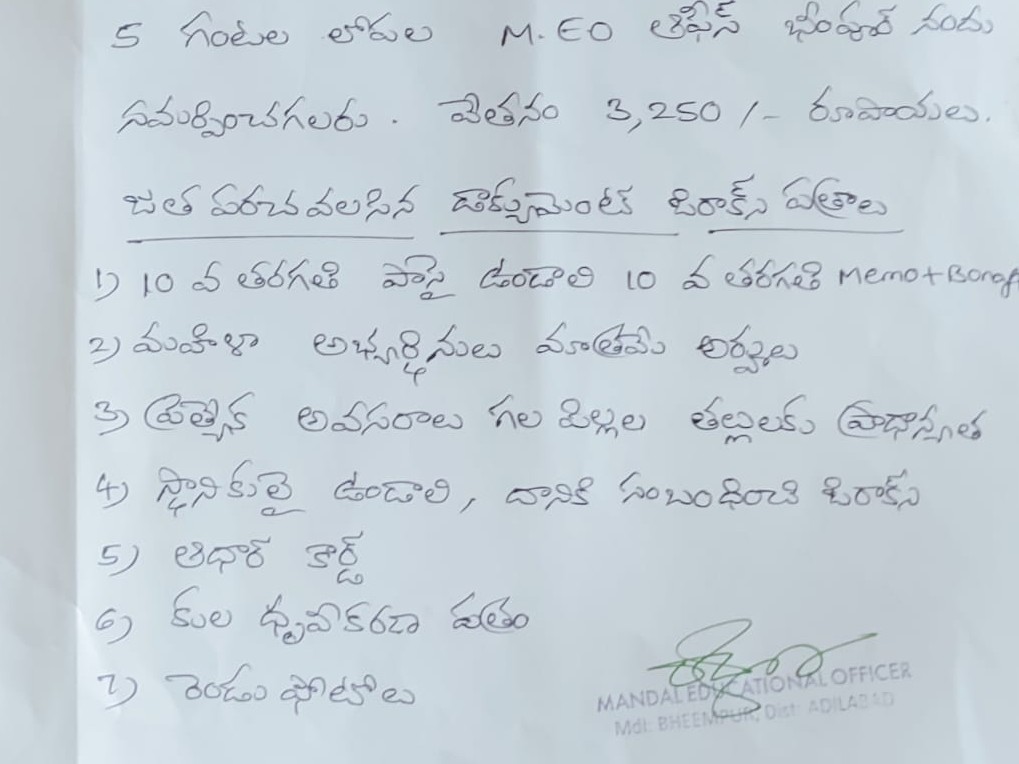 5 గంటల లోపల M.EO ఆఫీస్ భీంపూర్ నందు
సమర్పించగలరు. వేతనం 3,250/- రూపాయలు.
జత పరచవలసిన డాక్యుమెంట్ జిరాక్స్ పత్రాలు
1) 10 వ తరగతి పాసై ఉండాలి 10 వ తరగతి Memo+Bonaf
2) మహిళా అభ్యర్థినులు మాత్రమే అర్హులు
3) ప్రత్యేక అవసరాలు గల పిల్లల తల్లులకు ప్రాధాన్యత
4) స్థానికులై ఉండాలి, దానికి సంబంధించి జిరాక్స్
5) ఆధార్ కార్డ్
6) కుల ధృవీకరణ పత్రం
7) రెండు ఫోటోలు
MANDAL EDUCATIONAL OFFICER
Mdl: BHEEMPUR, Dist: ADILABAD